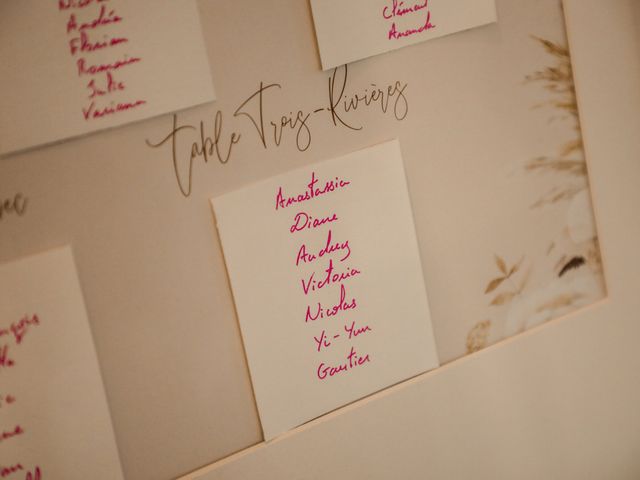 Andréa
Florian
Romain
Julie
Clément
Amanda
Table Trois-Rivières
Anastassia
Diane
Audrey
Victoria
Nicolas
Yi-Yun
Gautier